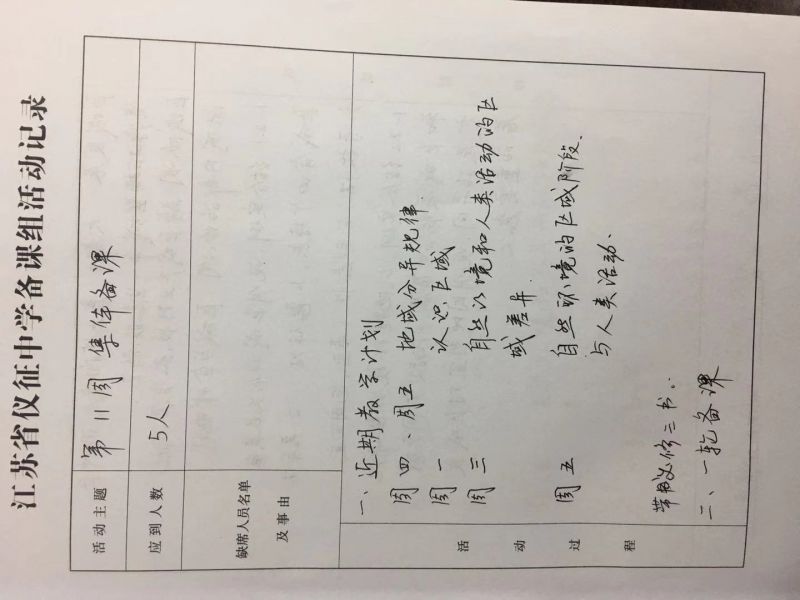 江苏省仪征中学备课组活动记录
活动主题 第11周集体备课
应到人数 5人
缺席人员名单
及事由
活动过程
一、近期教学计划
周四、周五 地域分异规律.
周一 认识区域
周三 自然环境和人类活动的区
域差异.
周五 自然环境的区域阶段.
与人类活动.
带必修三书.
二、一轮备课